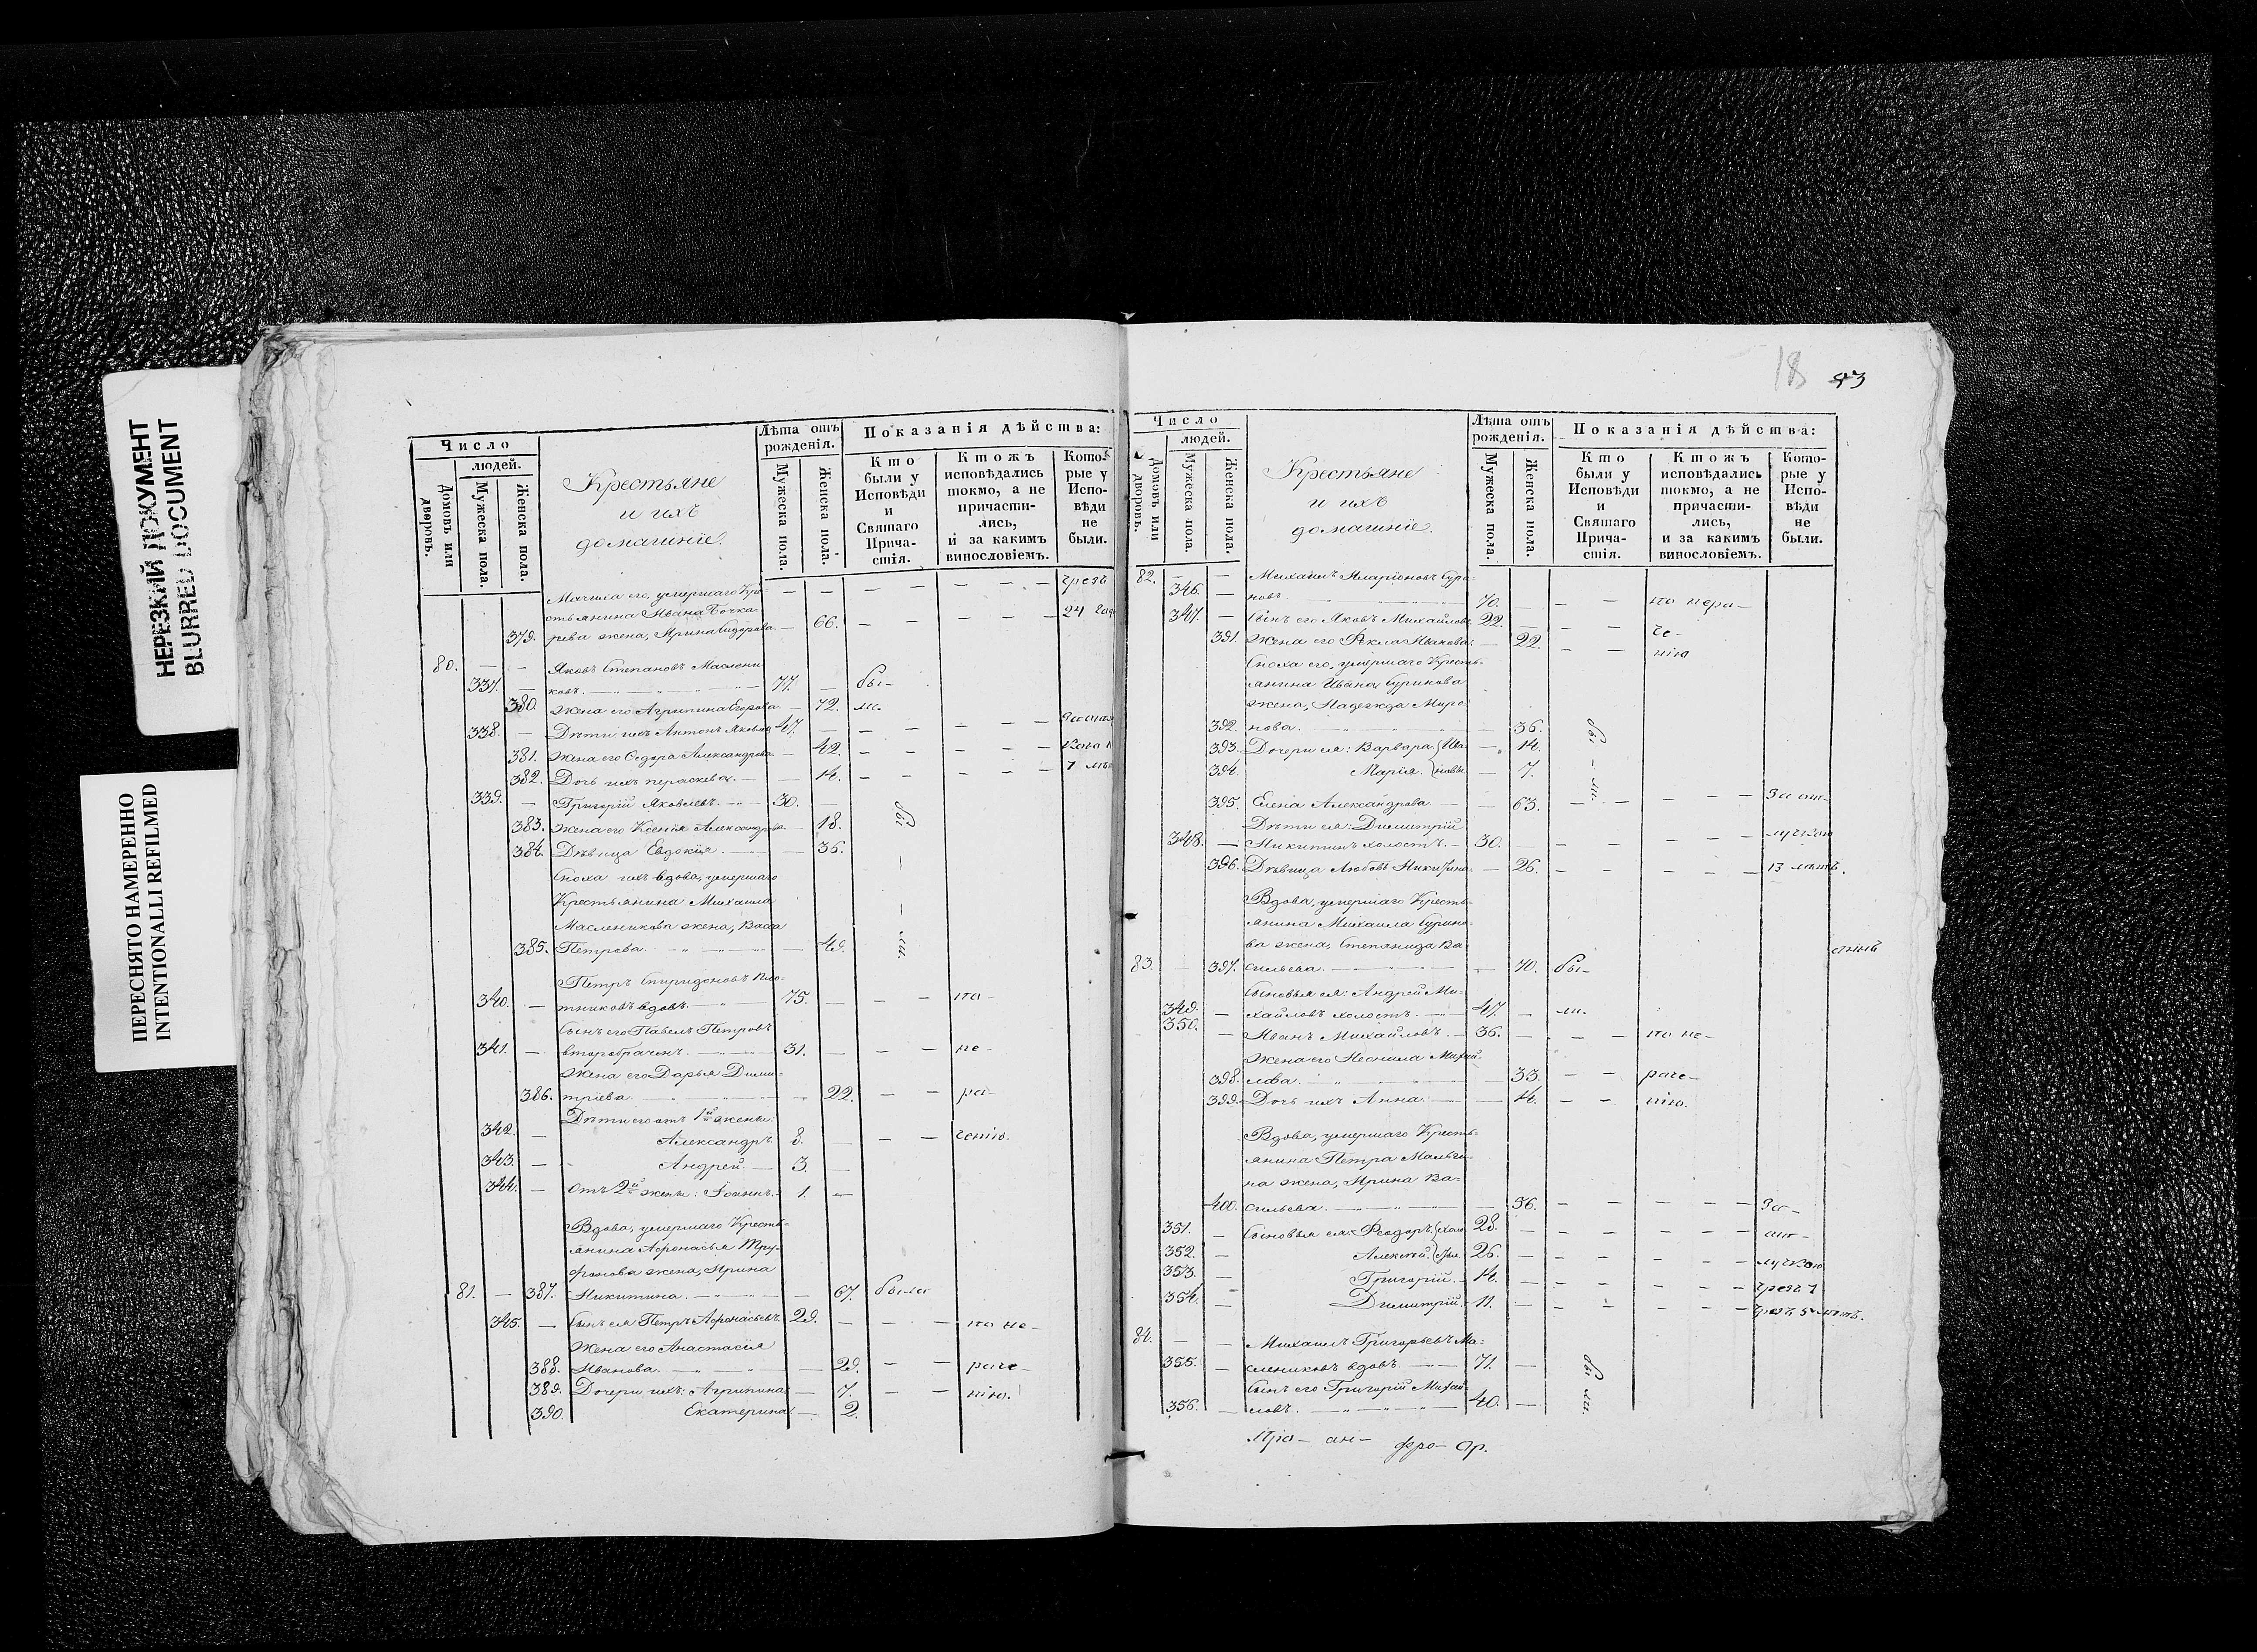 НЕРЕЗКИЙ ДОКУМЕНТ
BLURRED DOCUMENT
ПЕРЕСНЯТО НАМЕРЕННО
INTENTIONALLI REFILMED
Число
людей.
Домовъ или дворовъ.
Мужеска пола.
Женска пола.
Крестьяне
и ихъ
домашніе.
Лѣта отъ рожденія.
Мужеска пола.
Женска пола.
Показанія дѣйства:
Кто были у Исповѣди и Святаго Причастія.
Ктожъ исповѣдались токмо, а не причастились, и за какимъ винословіемъ.
Которые у Исповѣди не были.
Мачиха его, умершаго Кре — — — — — — чрезъ
стьянина Ивана Бочка-
379. рева жена, Ирина Сидорова — 66. — — — — — 24 года
80. — — Яковъ Степановъ Маслени
337. — ковъ. 77. — бы-
380. жена его Агрипина Егорова — 72. ли.
338. — Дѣти ихъ Антонъ Яковлевъ 47. — — — — —
381. жена его Федора Александрова — 42. — — — — —
382. Дочь ихъ пераскева. — — 14. — — — — —
339. — Григорій Яковлевъ. 30. —
383. жена его Ксенія Александрова — 18. бы
384. Дѣвица Евдокія. — 36. —
Сноха ихъ вдова, умершаго
Крестьянина Михаила —
Масленикова жена, Васса
385. Петрова. — 49. ли.
Петръ Спиридоновъ Пло-
340. — тниковъ вдовъ. 75. — — — по
Сынъ его Павелъ Петровъ
341. — второбраченъ. 31. — — — не-
жена его Дарья Дими-
386. тріева — 22. — — ра-
Дѣти его отъ 1й жены:
342. — Александръ 8. — — — ченію.
343. — Андрей. — 3. —
344. — отъ 2й жены: Іоаннъ. 1. —
Вдова, умершаго Кресть-
янина Афонасья Три-
фонова жена, Ирина
81. — 387. Никитина. — 67. была
345. — Сынъ ея Петръ Афонасьевъ. 29. — — — по не-
Жена его Анастасія
388. Иванова. — 29. — — раче-
389. Дочери ихъ: Агрипина — 7. — — нію.
390. Екатерина — 2.
18 43
Число
людей.
Домовъ или дворовъ.
Мужеска пола.
Женска пола.
Крестьяне
и ихъ
домашніе.
Лѣта отъ рожденія.
Мужеска пола.
Женска пола.
Показанія дѣйства:
Кто были у Исповѣди и Святаго Причастія.
Ктожъ исповѣдались токмо, а не причастились, и за какимъ винословіемъ.
Которые у Исповѣди не были.
82. — — Михаилъ Иларіоновъ Бури-
346. — новъ. 70. — — — по нера-
347. — Сынъ его Яковъ Михайловъ 22. — — — че-
391. Жена его Фекла Иванова — 22. — — нію
Сноха его, умершаго Кресть-
янина Ивана Буринова
жена, Надежда Миро-
392. нова. — 36. бы
393. Дочери ея: Варвара. Ива- — 14. —
394. Марія. новы. — 7. ли.
395. Елена Александрова — 63. — — — — — За от-
Дѣти ея: Димитрій
348. — Никитинъ холостъ. — 30. — — — — — лучкою
396. Дѣвица Любовь Никитина — 26. — — — — — 13 лѣтъ.
Вдова, умершаго Кресть-
янина Михаила Бурино-
ва жена, Степанида Ва-
83. 397. сильева. — 70. бы-
Сыновья ея: Андрей Ми-
349. — хайловъ холостъ. 47. — ли.
350. — Иванъ Михайловъ. — 36. — — — по не-
Жена его Неонила Михай-
398. лова. — 33. — — раче-
399. Дочь ихъ Анна. — 14. — — нію.
Вдова, умершаго Кресть-
янина Петра Мальги-
на жена, Ирина Ва-
400. сильева. — 56. — — — — — За-
351. — Сыновья ея: Феодоръ. холо 28. — — — — — от-
352. — Алексѣй. 26. — — — — — лучкою
353. — Григорій. — 14. — — — — — чрезъ 1
354. — Димитрій. — 11. — — — — — чрезъ 5 лѣтъ.
84. — — Михаилъ Григорьевъ Ма-
355. — слениковъ вдовъ. 71. — бы
Сынъ его Григорій Михай-
356. — ловъ. 40. — ли.